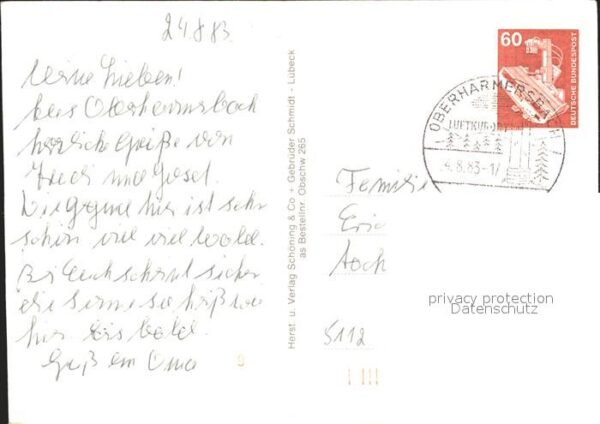 24.8.83.
Meine Lieben!
aus Oberharmersbach
herzliche Grüße von
Fredi und Gosel.
Die Gegend hier ist sehr
schön viel viel Wald.
Bei Euch scheint sicher
die Sonne so heiß wie
hier bis bald
Gruß em Oma
9
Herst. u. Verlag Schöning & Co + Gebrüder Schmidt - Lübeck
as Bestellnr. Obschw 265
60
DEUTSCHE BUNDESPOST
OBERHARMERSBACH 1
LUFTKURORT
4.8.83-17
Familie
Eric
Koch
5112
privacy protection
Datenschutz